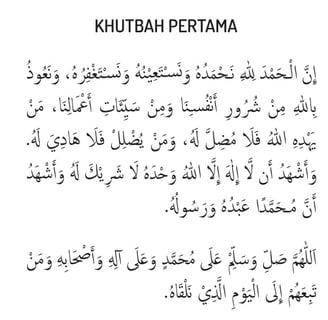 KHUTBAH PERTAMA
إِنَّ الْحَمْدَ لِلّٰهِ نَحْمَدُهُ وَنَسْتَعِيْنُهُ وَنَسْتَغْفِرُهُ، وَنَعُوذُ
بِاللهِ مِنْ شُرُورِ أَنْفُسِنَا وَمِنْ سَيِّئَاتِ أَعْمَالِنَا، مَنْ
يَهْدِهِ اللهُ فَلَا مُضِلَّ لَهُ، وَمَنْ يُضْلِلْ فَلَا هَادِيَ لَهُ.
وَأَشْهَدُ أَن لَّا إِلٰهَ إِلَّا اللهُ وَحْدَهُ لَا شَرِيْكَ لَهُ وَأَشْهَدُ
أَنَّ مُحَمَّدًا عَبْدُهُ وَرَسُولُهُ.
اَللّٰهُمَّ صَلِّ وَسَلِّمْ عَلَى مُحَمَّدٍ وَعَلَى آلِهِ وَأَصْحَابِهِ وَمَنْ
تَبِعَهُمْ إِلَى الْيَوْمِ الَّذِيْ نَلْقَاهُ.